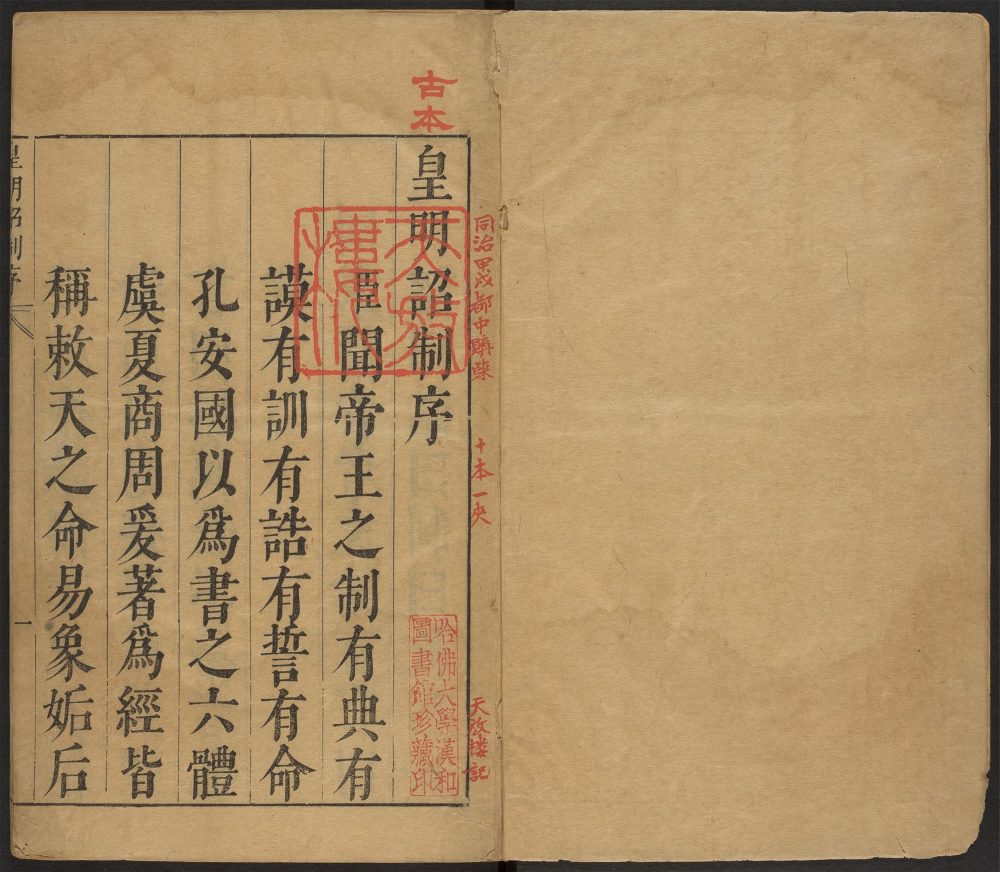 古本
皇明詔制序
聞帝王之制有典有
謨有訓有誥有誓有命
孔安國以爲書之六體
虞夏商周爰著爲經皆
稱敕天之命易象姤后
皇明詔制序
一
同治甲戌都中購藏
十本一夾
天放樓記
哈佛大學漢和
圖書館珍藏印